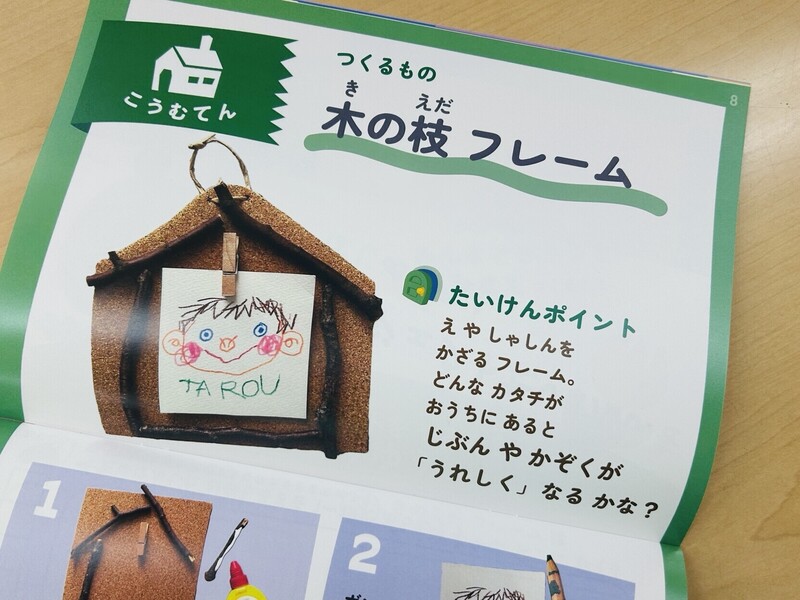 8
こうむてん
つくるもの
き えだ
木の枝 フレーム
TAROU
たいけんポイント
え や しゃしんを
かざる フレーム。
どんな カタチが
おうちに あると
じぶん や かぞくが
「うれしく」 なる かな？
1
2